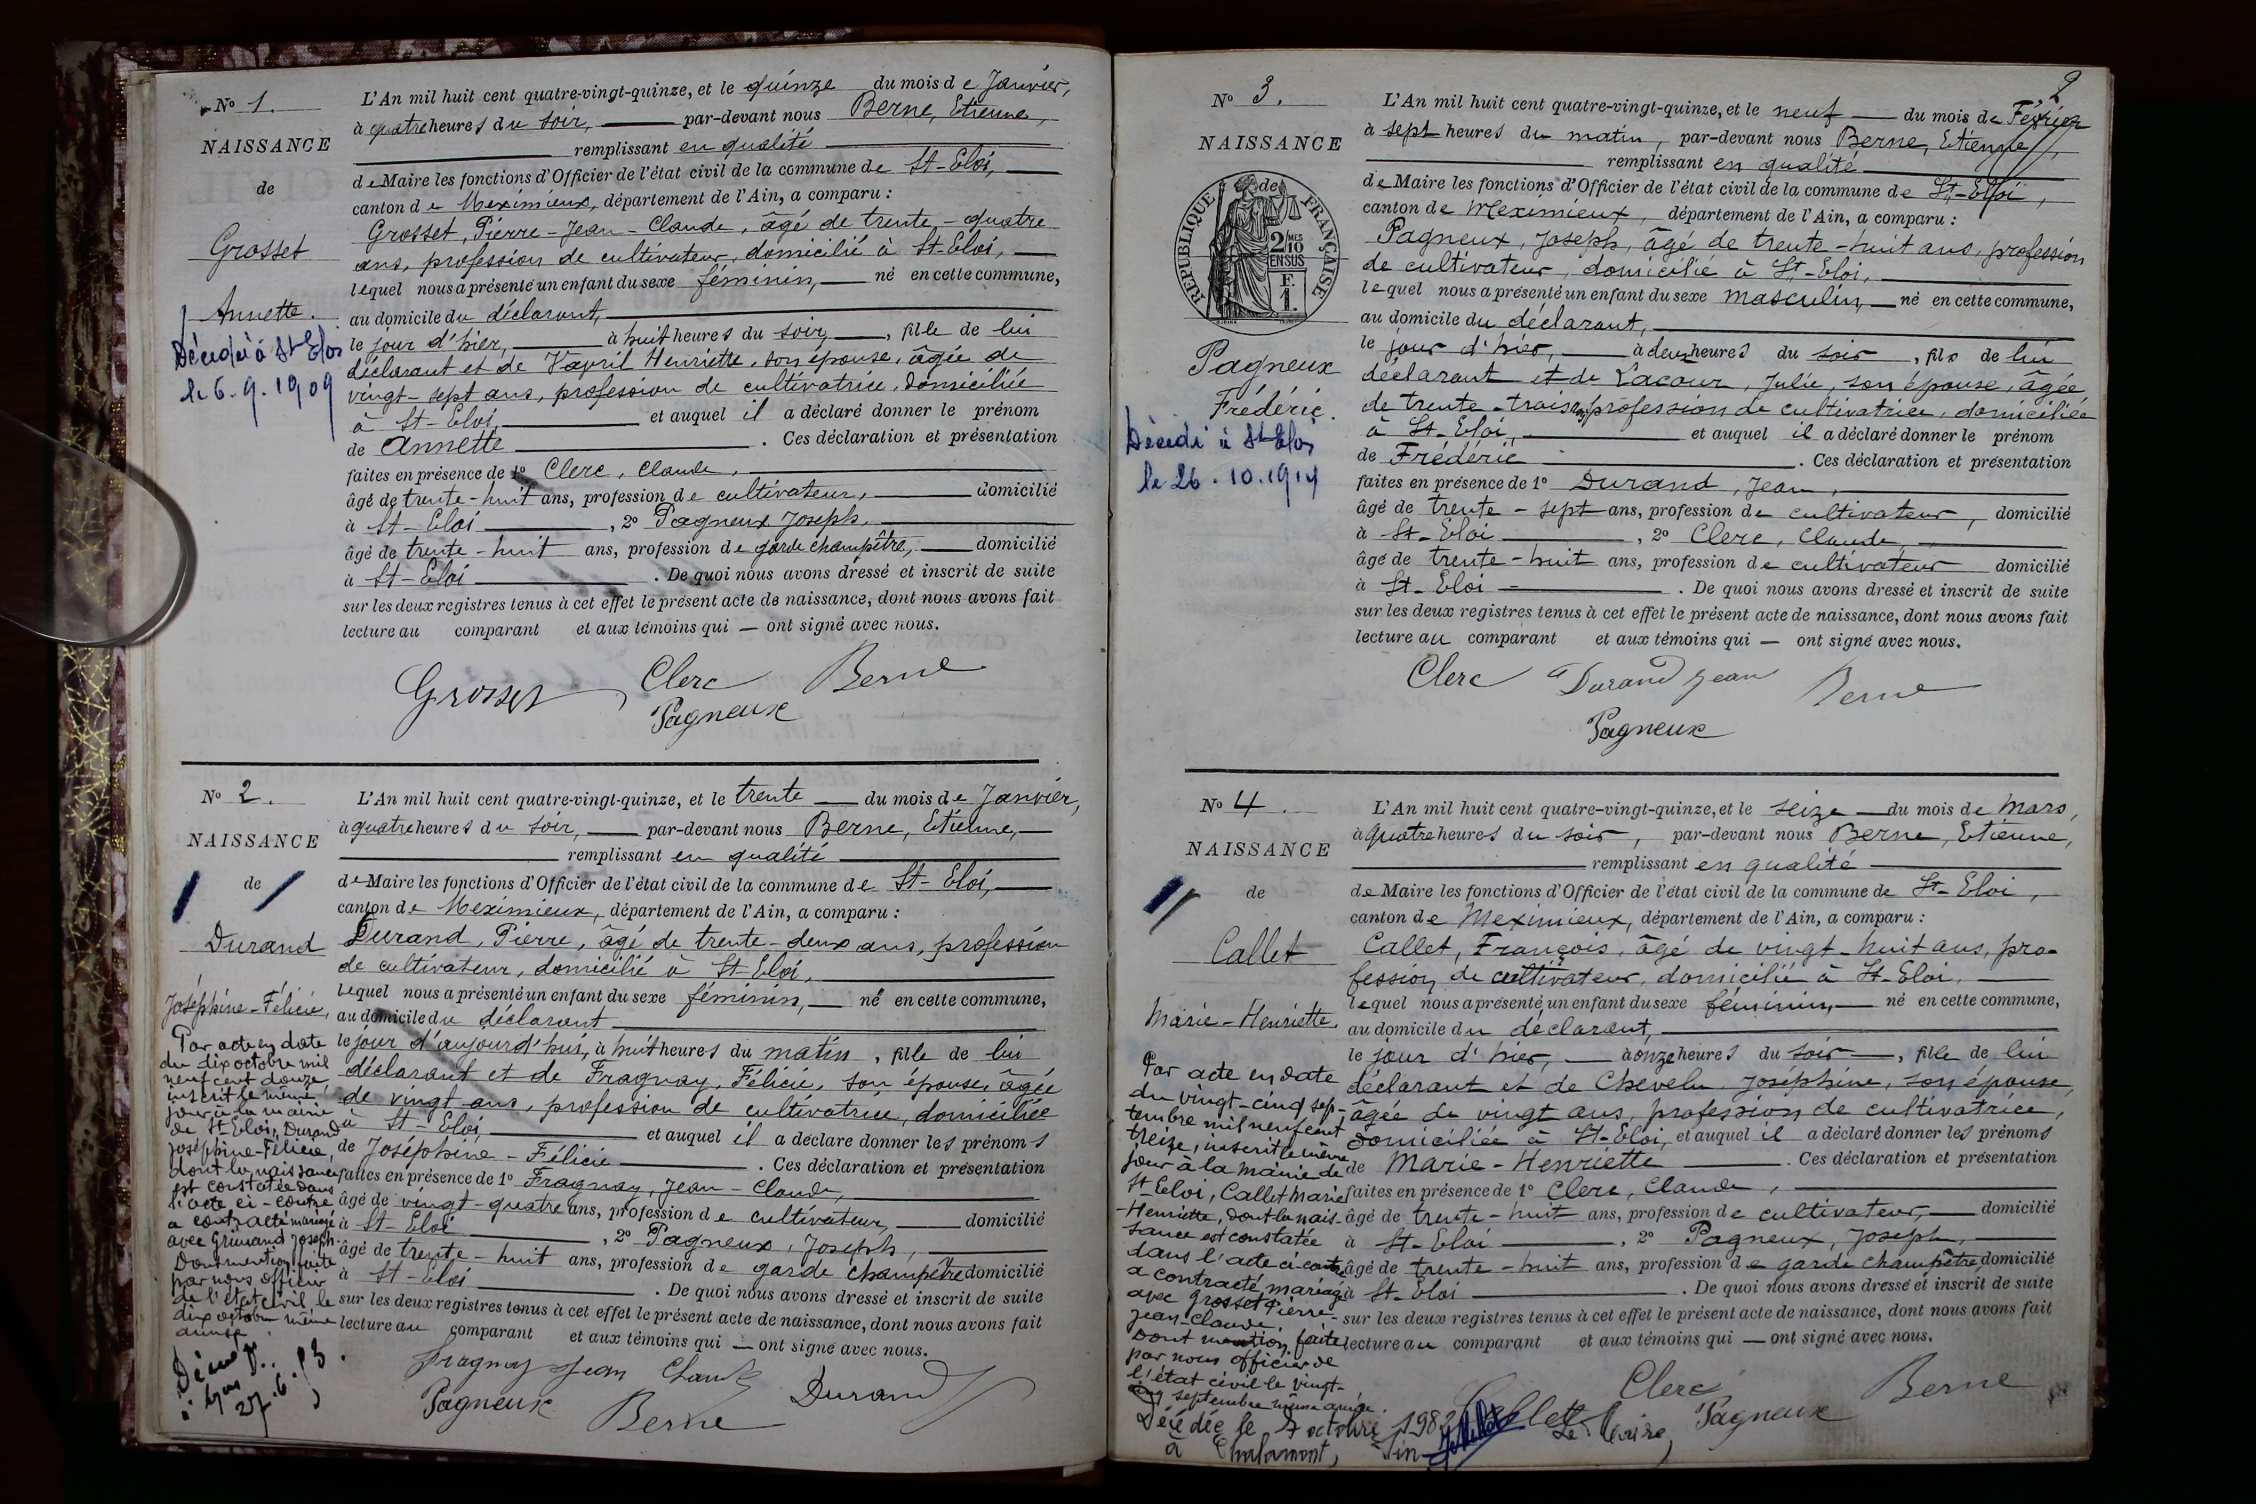 No 1.
NAISSANCE
de
Grosset
Annette.
Décédée à St Eloi
le 6.9.1909
L'An mil huit cent quatre-vingt-quinze, et le quinze du mois de Janvier,
à quatre heures du soir, par-devant nous Berne, Etienne,
remplissant en qualité
de Maire les fonctions d'Officier de l'état civil de la commune de St-Eloi,
canton de Meximieux, département de l'Ain, a comparu :
Grosset, Pierre-Jean-Claude, âgé de trente-quatre
ans, profession de cultivateur, domicilié à St-Eloi,
lequel nous a présenté un enfant du sexe féminin, né en cette commune,
au domicile du déclarant,
le jour d'hier, à huit heures du soir, fille de lui
déclarant et de Henriette, son épouse, âgée de
vingt-sept ans, profession de cultivatrice, domiciliée
à St-Eloi, et auquel il a déclaré donner le prénom
de Annette. Ces déclaration et présentation
faites en présence de 1o Clerc, Claude,
âgé de trente-huit ans, profession de cultivateur, domicilié
à St-Eloi, 2o Pagneux Joseph,
âgé de trente-huit ans, profession de garde champêtre, domicilié
à St-Eloi. De quoi nous avons dressé et inscrit de suite
sur les deux registres tenus à cet effet le présent acte de naissance, dont nous avons fait
lecture au comparant et aux témoins qui — ont signé avec nous.
Grosset Clerc Berne
Pagneux
No 2.
NAISSANCE
de
Durand
Joséphine-Félicie,
Par acte en date
du dix octobre mil
neuf cent douze,
inscrit le même
jour à la mairie
de St Eloi, Durand
Joséphine-Félicie,
dont la naissance
est constatée dans
l'acte ci-contre
a contracté mariage
avec Grimand Joseph.
Dont mention faite
par nous officier
de l'état civil le
dix octobre même
année.
27.6.53.
L'An mil huit cent quatre-vingt-quinze, et le trente du mois de Janvier,
à quatre heures du soir, par-devant nous Berne, Etienne,
remplissant en qualité
de Maire les fonctions d'Officier de l'état civil de la commune de St-Eloi,
canton de Meximieux, département de l'Ain, a comparu :
Durand, Pierre, âgé de trente-deux ans, profession
de cultivateur, domicilié à St Eloi,
lequel nous a présenté un enfant du sexe féminin, né en cette commune,
au domicile du déclarant
le jour d'aujourd'hui, à huit heures du matin, fille de lui
déclarant et de Fragnay, Félicie, son épouse, âgée
de vingt ans, profession de cultivatrice, domiciliée
à St-Eloi et auquel il a déclaré donner les prénoms
de Joséphine-Félicie. Ces déclaration et présentation
faites en présence de 1o Fragnay, Jean-Claude,
âgé de vingt-quatre ans, profession de cultivateur, domicilié
à St-Eloi, 2o Pagneux, Joseph,
âgé de trente-huit ans, profession de garde champêtre domicilié
à St-Eloi. De quoi nous avons dressé et inscrit de suite
sur les deux registres tenus à cet effet le présent acte de naissance, dont nous avons fait
lecture au comparant et aux témoins qui — ont signé avec nous.
Fragnay Jean Claude
Pagneux Berne Durand
2
No 3.
NAISSANCE
de
REPUBLIQUE FRANÇAISE
2 MES 10
EN SUS
F.
1.
Pagneux
Frédéric.
Décédé à St Eloi
le 26.10.1914
L'An mil huit cent quatre-vingt-quinze, et le neuf du mois de Février
à sept heures du matin, par-devant nous Berne, Etienne,
remplissant en qualité
de Maire les fonctions d'Officier de l'état civil de la commune de St-Eloi,
canton de Meximieux, département de l'Ain, a comparu :
Pagneux, Joseph, âgé de trente-huit ans, profession
de cultivateur, domicilié à St-Eloi,
lequel nous a présenté un enfant du sexe masculin, né en cette commune,
au domicile du déclarant,
le jour d'hier, à deux heures du soir, fils de lui
déclarant et de Lacour, Julie, son épouse, âgée
de trente-trois ans, profession de cultivatrice, domiciliée
à St-Eloi, et auquel il a déclaré donner le prénom
de Frédéric. Ces déclaration et présentation
faites en présence de 1o Durand, Jean,
âgé de trente-sept ans, profession de cultivateur, domicilié
à St-Eloi, 2o Clerc, Claude,
âgé de trente-huit ans, profession de cultivateur domicilié
à St-Eloi. De quoi nous avons dressé et inscrit de suite
sur les deux registres tenus à cet effet le présent acte de naissance, dont nous avons fait
lecture au comparant et aux témoins qui — ont signé avec nous.
Clerc Durand Jean Berne
Pagneux
No 4.
NAISSANCE
de
Callet
Marie-Henriette.
Par acte en date
du vingt-cinq sep-
tembre mil neuf cent
treize, inscrit le même
jour à la mairie de
St-Eloi, Callet Marie
-Henriette, dont la nais-
sance est constatée
dans l'acte ci-contre
a contracté mariage
avec Grosset Pierre-
Jean-Claude.
Dont mention faite
par nous officier de
l'état civil le vingt-
cinq septembre même année.
Décédée le 7 octobre 198
à Chalamont, Ain
Le Maire,
L'An mil huit cent quatre-vingt-quinze, et le seize du mois de Mars,
à quatre heures du soir, par-devant nous Berne, Etienne,
remplissant en qualité
de Maire les fonctions d'Officier de l'état civil de la commune de St-Eloi,
canton de Meximieux, département de l'Ain, a comparu :
Callet, François, âgé de vingt-huit ans, pro-
fession de cultivateur, domicilié à St-Eloi,
lequel nous a présenté un enfant du sexe féminin, né en cette commune,
au domicile du déclarant,
le jour d'hier, à onze heures du soir, fille de lui
déclarant et de Chevelu, Joséphine, son épouse,
âgée de vingt ans, profession de cultivatrice,
domiciliée à St-Eloi, et auquel il a déclaré donner les prénoms
de Marie-Henriette. Ces déclaration et présentation
faites en présence de 1o Clerc, Claude,
âgé de trente-huit ans, profession de cultivateur, domicilié
à St-Eloi, 2o Pagneux, Joseph,
âgé de trente-huit ans, profession de garde champêtre, domicilié
à St-Eloi. De quoi nous avons dressé et inscrit de suite
sur les deux registres tenus à cet effet le présent acte de naissance, dont nous avons fait
lecture au comparant et aux témoins qui — ont signé avec nous.
Callet Clerc Berne
Pagneux